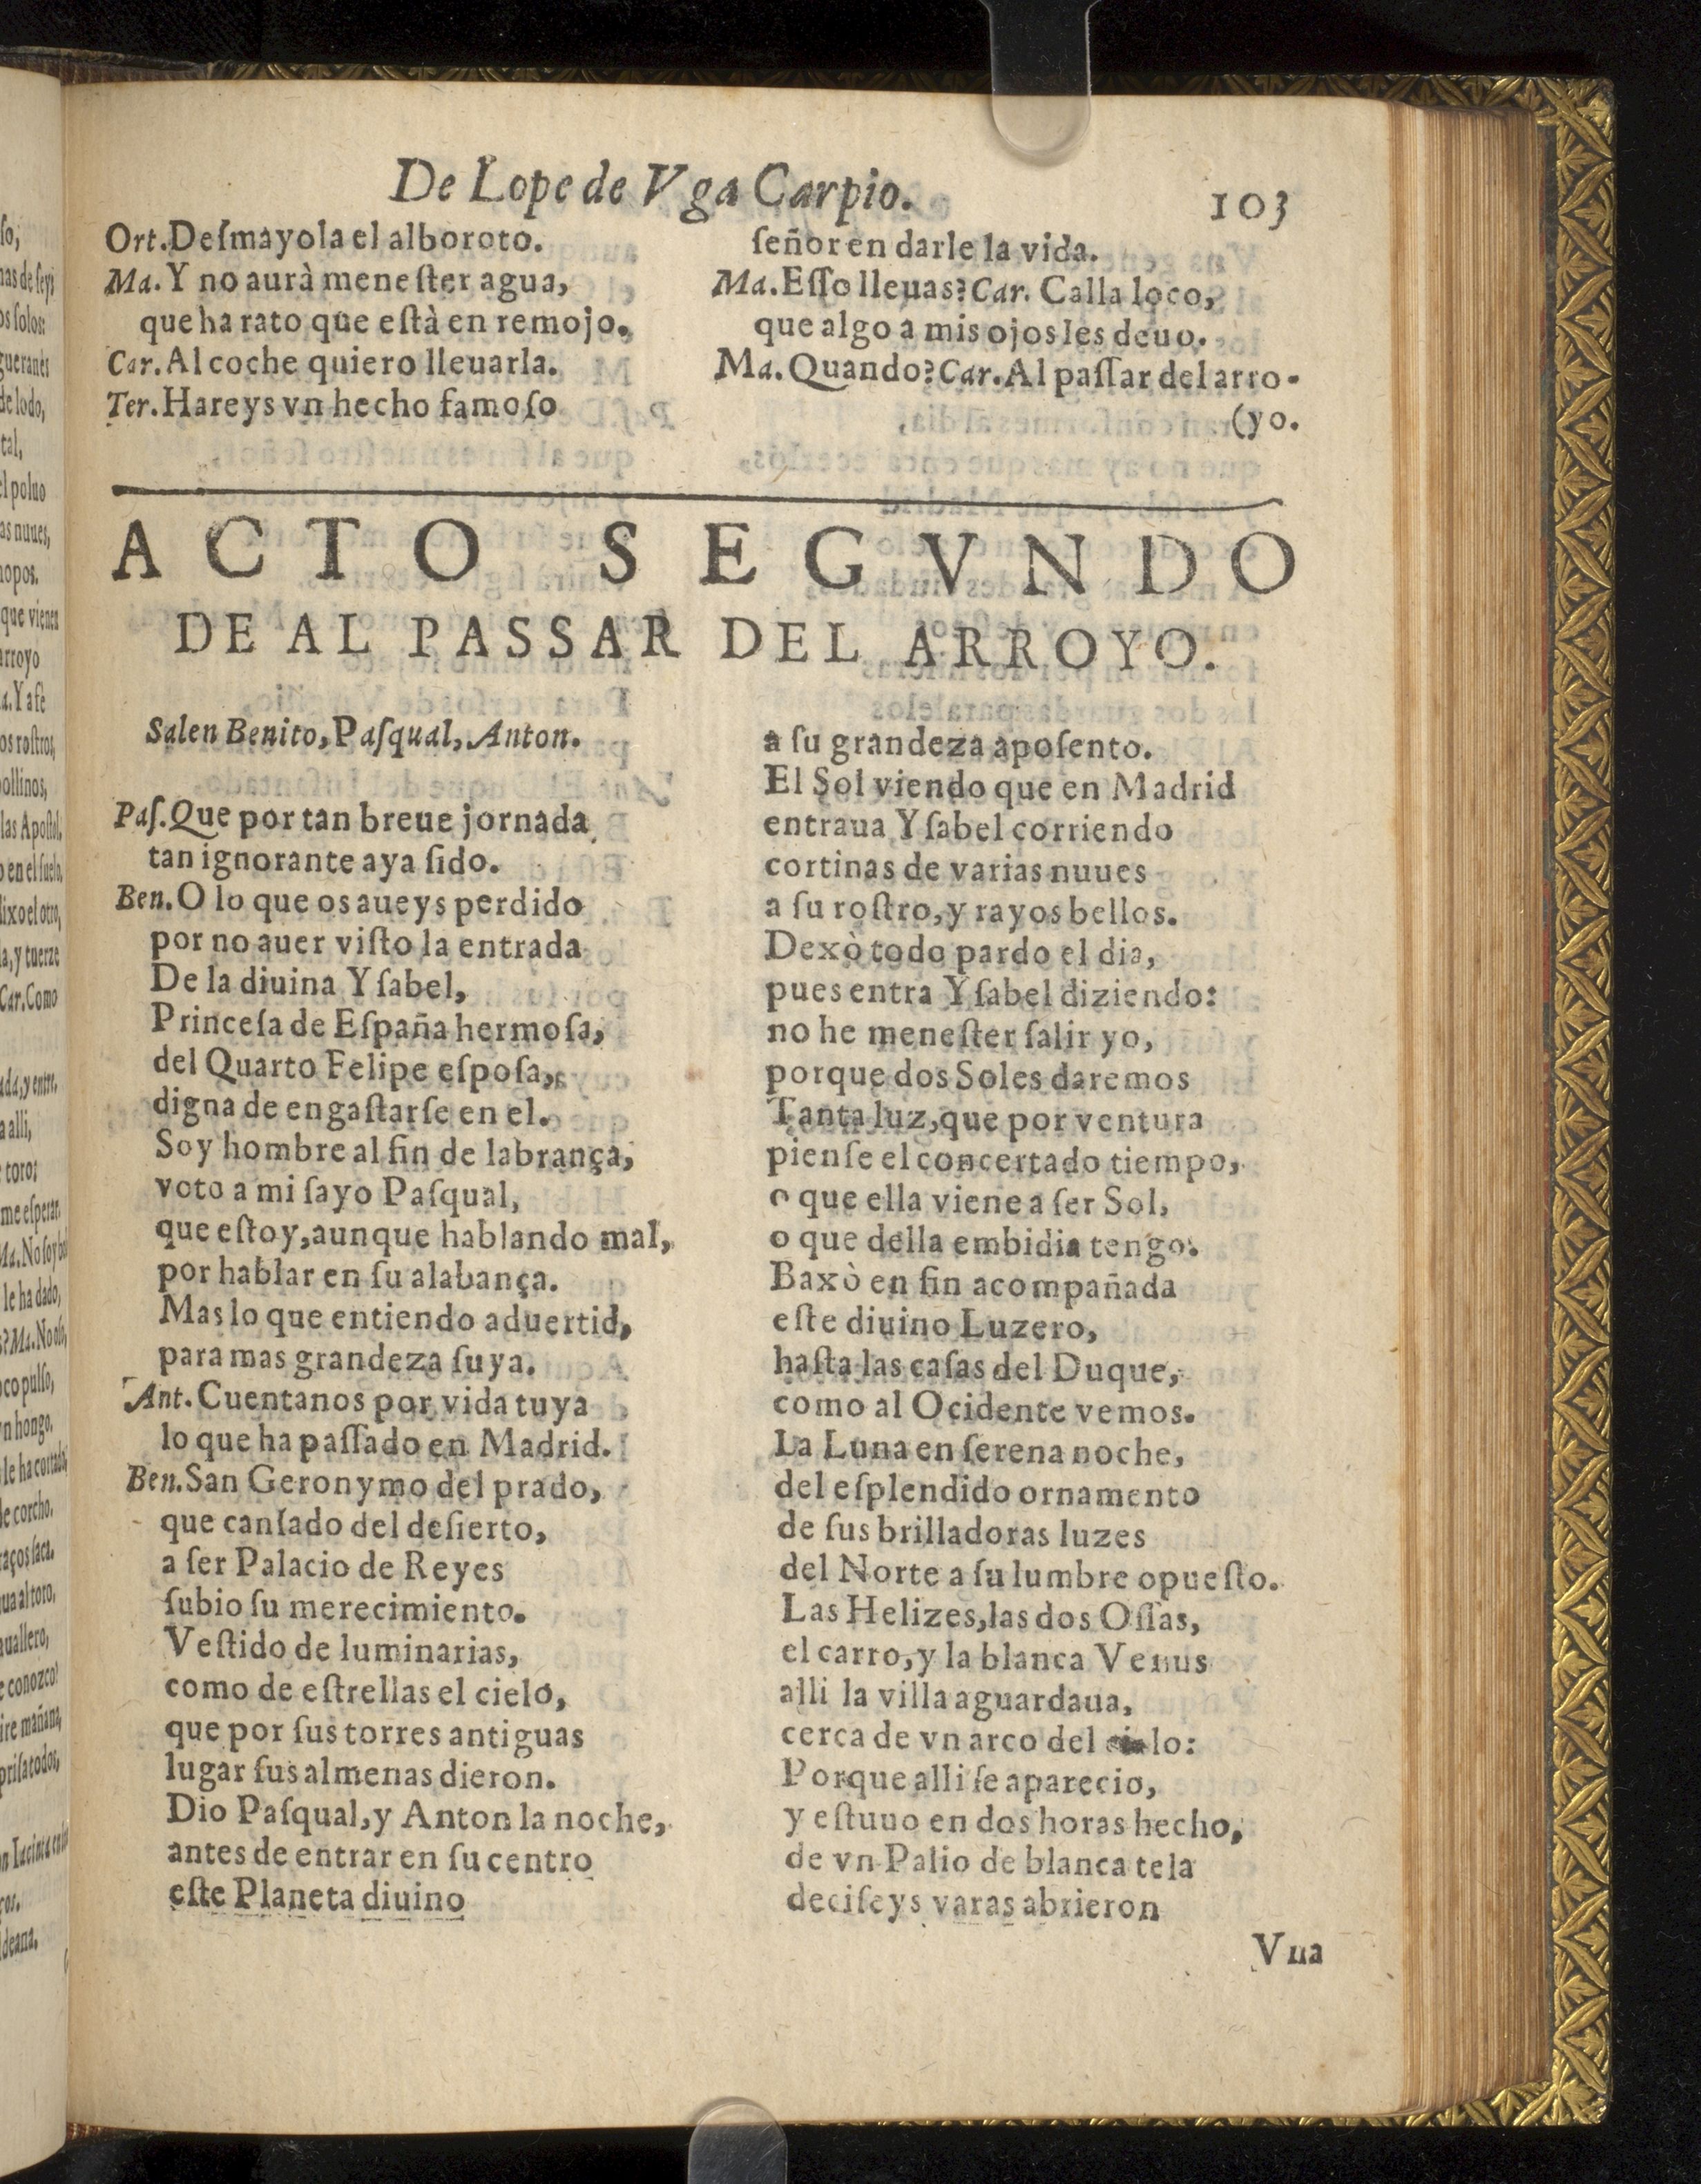 De Lope de Vga Carpio.
103
Ort. Deſmayola el alboroto.
Ma. Y no aurà meneſter agua,
que ha rato que eſtà en remojo.
Car. Al coche quiero lleuarla.
Ter. Hareys vn hecho famoſo
ſeñor en darle la vida.
Ma. Eſſo lleuas? Car. Calla loco,
que algo a mis ojos les deuo.
Ma. Quando? Car. Al paſſar del arro-
(yo.
ACTO SEGVNDO
DE AL PASSAR DEL ARROYO.
Salen Benito, Paſqual, Anton.
Paſ. Que por tan breue jornada
tan ignorante aya ſido.
Ben. O lo que os aueys perdido
por no auer viſto la entrada
De la diuina Yſabel,
Princeſa de Eſpaña hermoſa,
del Quarto Felipe eſpoſa,
digna de engaſtarſe en el.
Soy hombre al fin de labrança,
voto a mi ſayo Paſqual,
que eſtoy, aunque hablando mal,
por hablar en ſu alabança.
Mas lo que entiendo aduertid,
para mas grandeza ſuya.
Ant. Cuentanos por vida tuya
lo que ha paſſado en Madrid.
Ben. San Geronymo del prado,
que canſado del deſierto,
a ſer Palacio de Reyes
ſubio ſu merecimiento.
Veſtido de luminarias,
como de eſtrellas el cielo,
que por ſus torres antiguas
lugar ſus almenas dieron.
Dio Paſqual, y Anton la noche,
antes de entrar en ſu centro
eſte Planeta diuino
a ſu grandeza apoſento.
El Sol viendo que en Madrid
entraua Yſabel corriendo
cortinas de varias nuues
a ſu roſtro, y rayos bellos.
Dexò todo pardo el dia,
pues entra Yſabel diziendo:
no he meneſter ſalir yo,
porque dos Soles daremos
Tanta luz, que por ventura
pienſe el concertado tiempo,
o que ella viene a ſer Sol,
o que della embidia tengo.
Baxò en fin acompañada
eſte diuino Luzero,
haſta las caſas del Duque,
como al Ocidente vemos.
La Luna en ſerena noche,
del eſplendido ornamento
de ſus brilladoras luzes
del Norte a ſu lumbre opueſto.
Las Helizes, las dos Oſſas,
el carro, y la blanca Venus
alli la villa aguardaua,
cerca de vn arco del cielo:
Porque alli ſe aparecio,
y eſtuuo en dos horas hecho,
de vn Palio de blanca tela
deciſeys varas abrieron
Vna